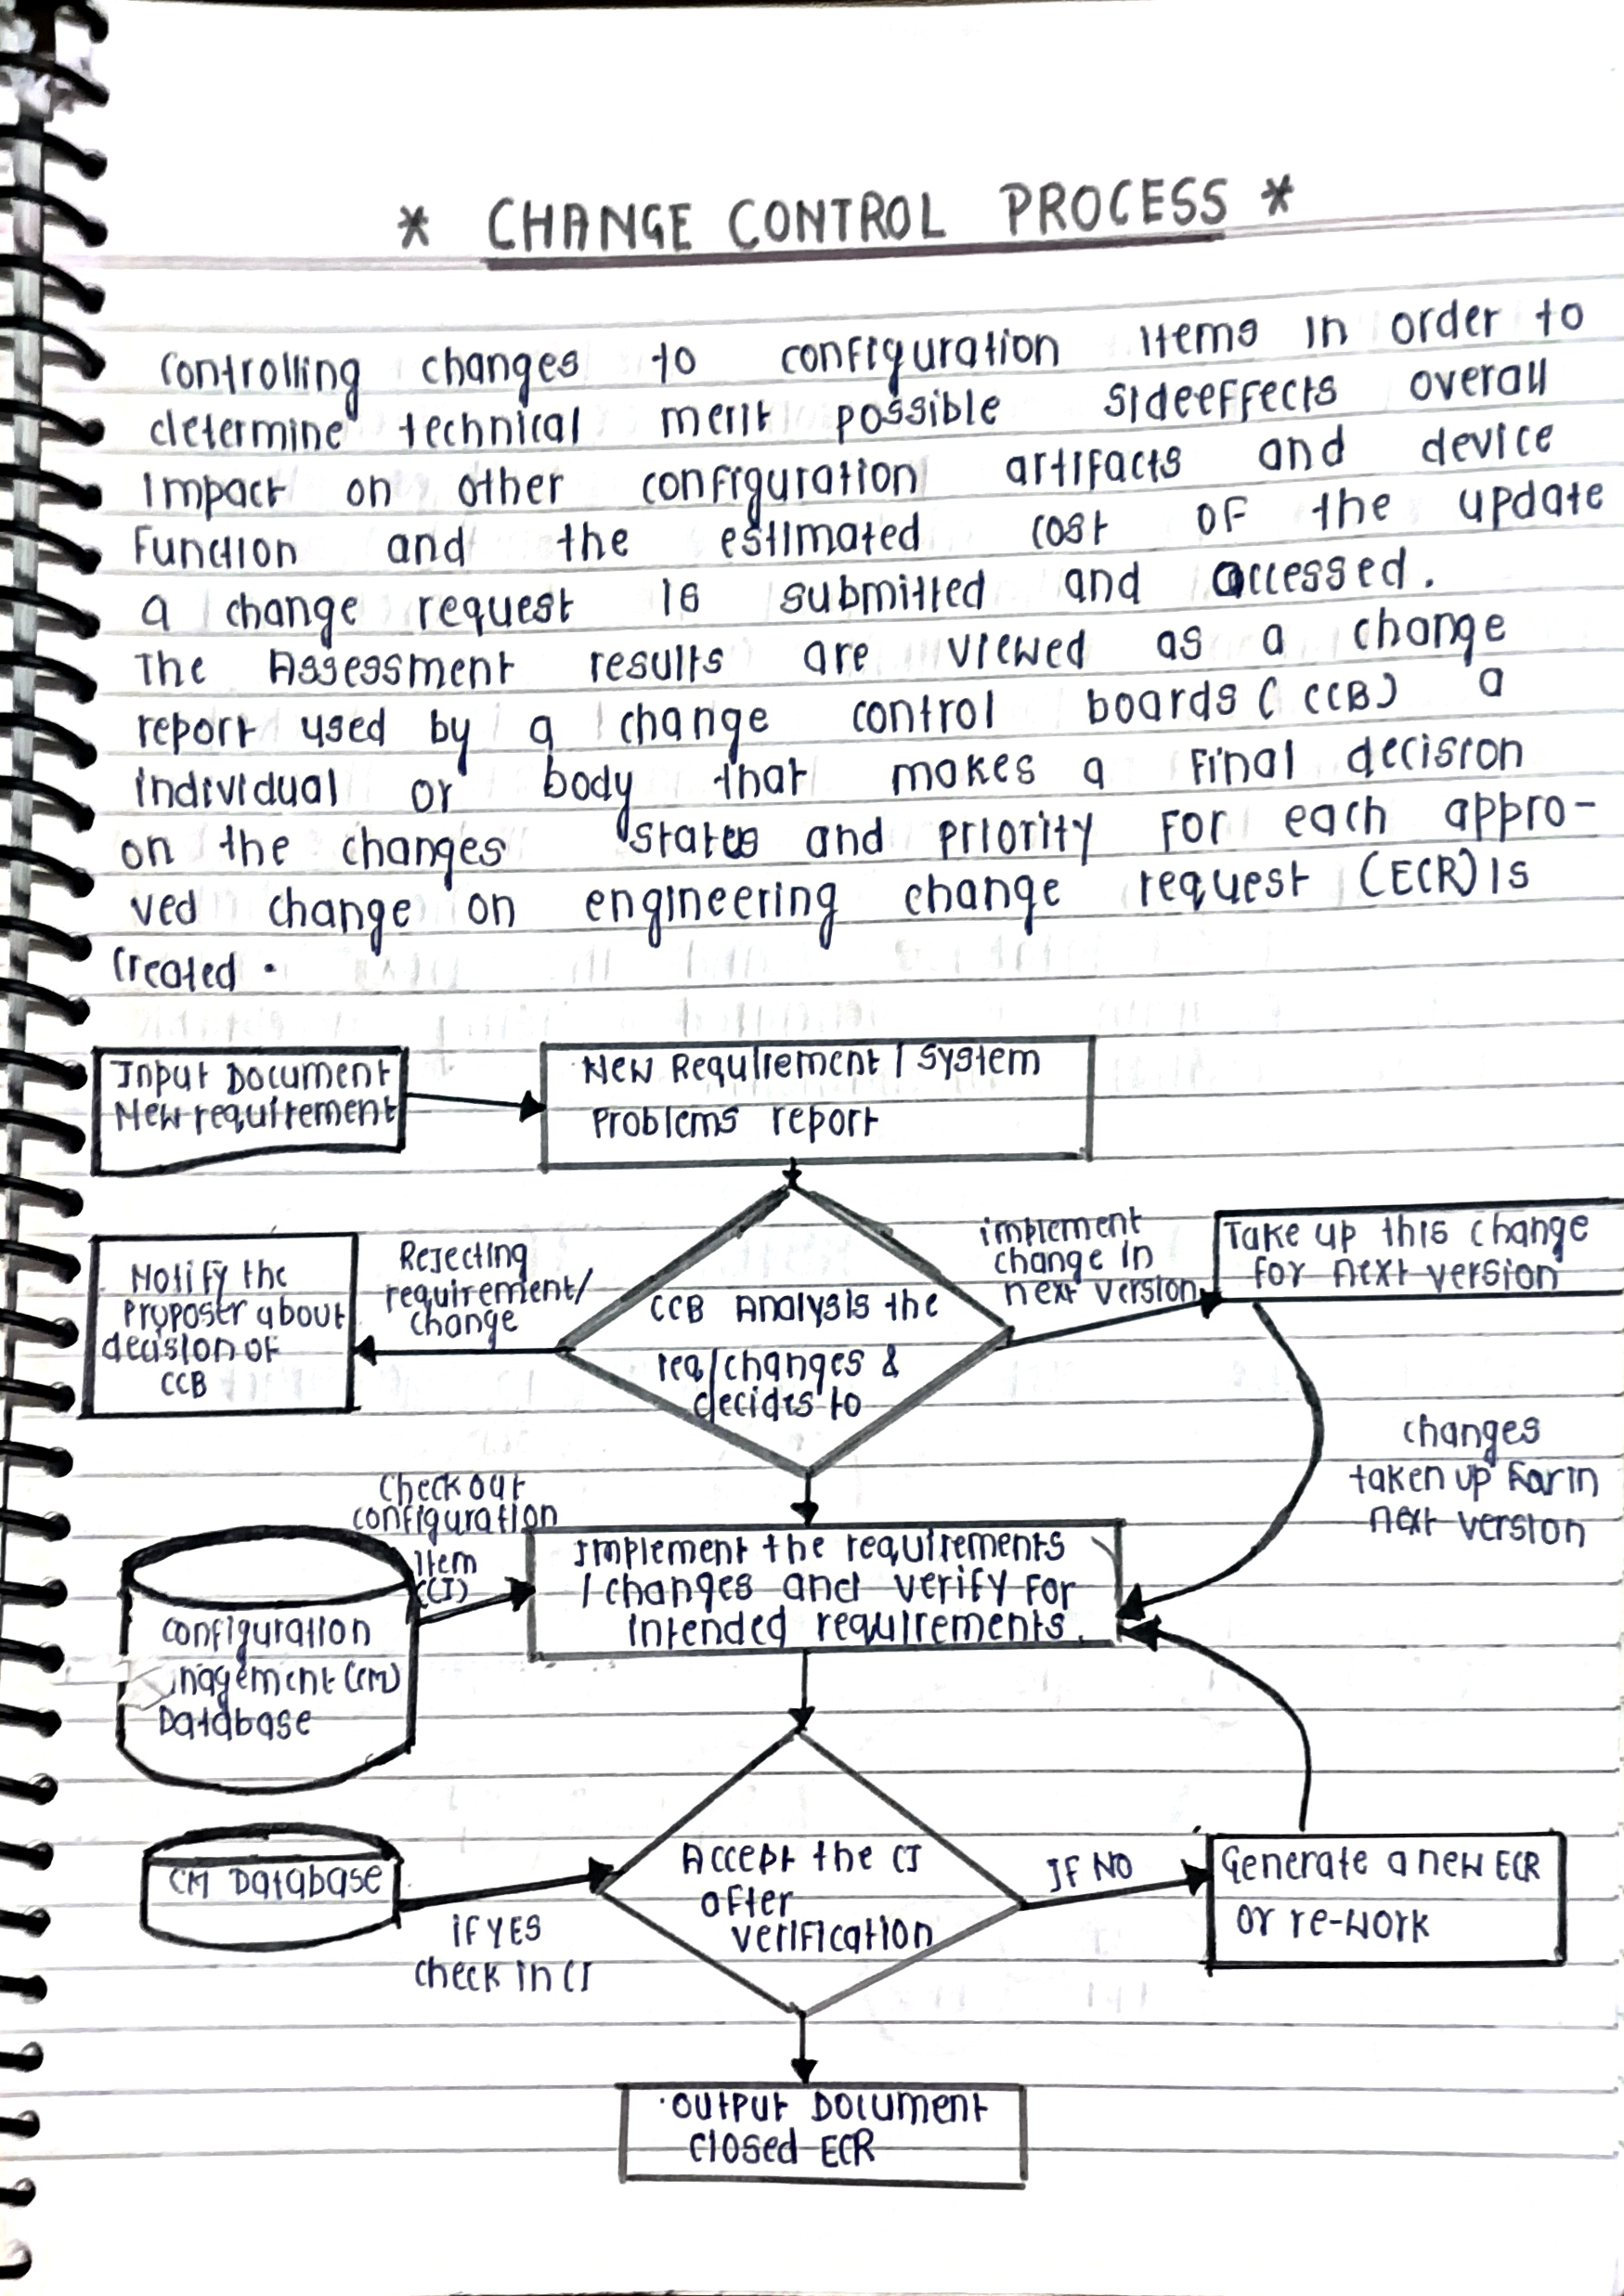 * CHANGE CONTROL PROCESS *
Controlling changes to configuration items in order to
determine technical merit possible sideeffects overall
impact on other configuration artifacts and device
Function and the estimated cost of the update
a change request is submitted and accessed.
The Assessment results are viewed as a change
report used by a change control boards (CCB) a
individual or body that makes a final decision
on the changes states and priority for each appro-
ved change on engineering change request (ECR) is
created.
Input Document
New requirement
New Requirement / System
Problems report
Notify the
proposer about
decision of
CCB
Rejecting
requirement/
change
CCB Analysis the
req/changes &
decides to
implement
change in
next version
Take up this change
for next version
changes
taken up for in
next version
Check out
configuration
Item
(CI)
Configuration
nagement (CM)
Database
Implement the requirements
/ changes and verify for
intended requirements.
CM Database
if YES
check in CI
Accept the CI
after
verification
IF NO
Generate a new ECR
or re-work
OUTPUT DOCUMENT
Closed ECR